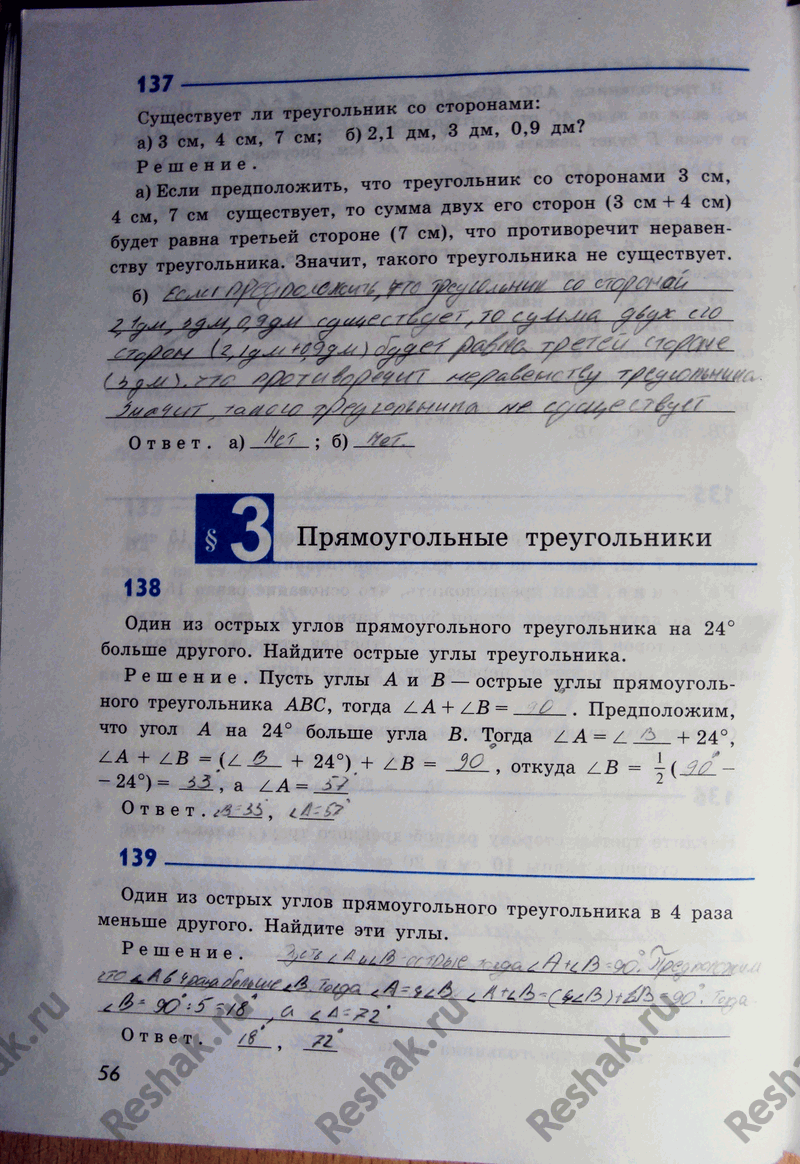 137
Существует ли треугольник со сторонами:
а) 3 см, 4 см, 7 см; б) 2,1 дм, 3 дм, 0,9 дм?
Решение.
а) Если предположить, что треугольник со сторонами 3 см,
4 см, 7 см существует, то сумма двух его сторон (3 см + 4 см)
будет равна третьей стороне (7 см), что противоречит неравен-
ству треугольника. Значит, такого треугольника не существует.
б) Если предположить, что треугольник со стороной
2,1дм, 3дм, 0,9дм существует, то сумма двух его
сторон (2,1дм+0,9дм) будет равна третей стороне
(3дм), что противоречит неравенству треугольника.
Значит, такого треугольника не существует
Ответ. а) Нет ; б) Нет.
§ 3 Прямоугольные треугольники
138
Один из острых углов прямоугольного треугольника на 24°
больше другого. Найдите острые углы треугольника.
Решение. Пусть углы A и B — острые углы прямоуголь-
ного треугольника ABC, тогда ∠A + ∠B = 90 . Предположим,
что угол A на 24° больше угла B. Тогда ∠A = ∠ B + 24°,
∠A + ∠B = (∠ B + 24°) + ∠B = 90 , откуда ∠B = 1/2 ( 90° –
– 24°) = 33°, а ∠A = 57°
Ответ. ∠B=33°, ∠A=57°
139
Один из острых углов прямоугольного треугольника в 4 раза
меньше другого. Найдите эти углы.
Решение. ∠A и ∠B острые тогда ∠A+∠B=90°. Предположим
что ∠A в 4 раза больше ∠B. Тогда ∠A=4∠B. ∠A+∠B=(4∠B)+∠B=90°. Тогда
∠B= 90°:5=18°, а ∠A=72°
Ответ. 18°, 72°
56
Reshak.ru
Reshak.ru
Reshak.ru
Reshak.ru